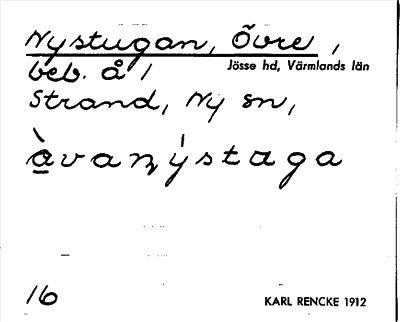 Nystugan, Övre,
beb. å /
Jösse hd, Värmlands län
Strand, Ny sn,
16
KARL RENCKE 1912